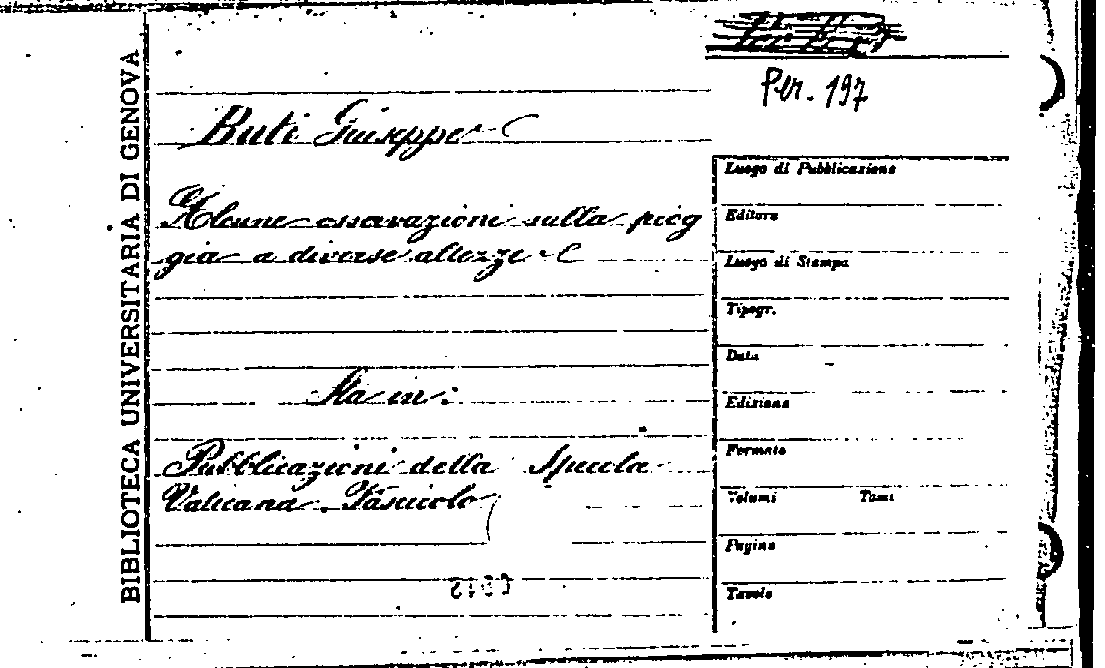 BIBLIOTECA UNIVERSITARIA DI GENOVA
Per. 197
Buti Giuseppe
Alcune osservazioni sulla piog
gia a diverse altezze
Sta in:
Pubblicazioni della Specola
Vaticana. Fascicolo
Luogo di Pubblicazione
Editore
Luogo di Stampa
Tipogr.
Data
Edizione
Formato
Volumi Tomi
Pagine
Tavole